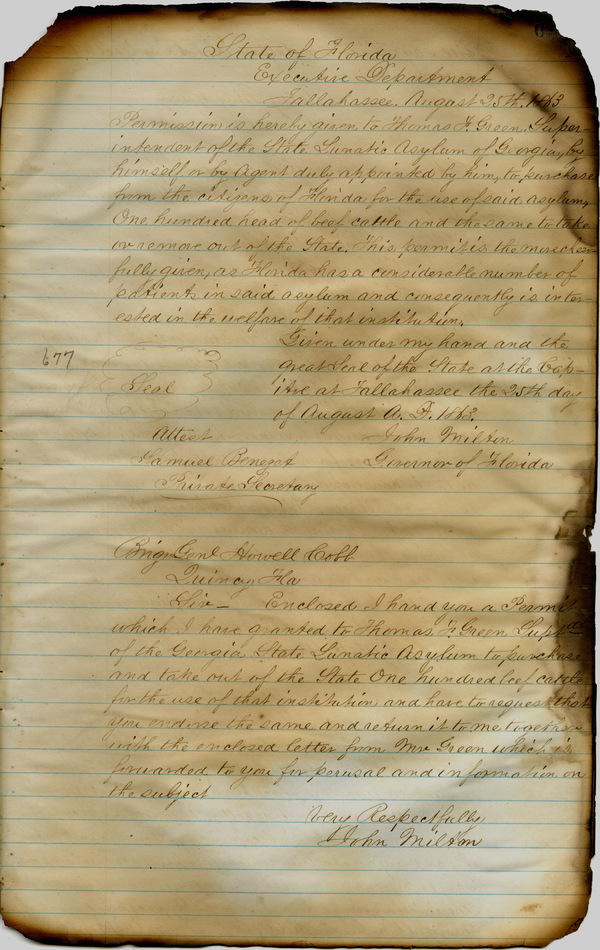 State of Florida
Executive Department
Tallahassee. August 25th. 1863
Permission is hereby given to Thomas F. Green, Super-
intendent of the State Lunatic Asylum of Georgia, by
himself or by Agent duly appointed by him, to purchase
from the citizens of Florida for the use of said asylum,
One hundred head of beef cattle and the same to take
or remove out of the State. This permit is the more cheer-
fully given, as Florida has a considerable number of
patients in said asylum and consequently is inter-
ested in the welfare of that institution.
Given under my hand and the
great Seal of the State at the Cap-
677
Seal
itol at Tallahassee the 25th day
of August A. D. 1863.
Attest
John Milton
Samuel Benezet
Governor of Florida
Private Secretary
Brig. Genl Howell Cobb
Quincy Fla
Sir – Enclosed I hand you a Permit
which I have granted to Thomas F. Green Supt
of the Georgia State Lunatic Asylum to purchase
and take out of the State One hundred beef cattle
for the use of that institution and have to request that
you endorse the same and return it to me together
with the enclosed letter from Mr Green which is
forwarded to you for perusal and information on
the subject
Very Respectfully
John Milton